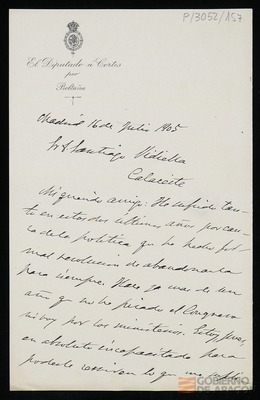 P/3052/157
El Diputado a Cortes
por
Boltaña
Madrid 16 de Julio 1905
Sr. D. Santiago Vidiella
Calaceite
Mi querido amigo: He sufrido tan-
to en estos dos últimos años por cau-
sa de la política que he hecho for-
mal resolucion de abandonarla
para siempre. Hace ya mas de un
año que no he pisado el Congreso
ni voy por los ministerios. Estoy, pues,
en absoluto incapacitado para
poderle
lo que me pide
GOBIERNO
DE ARAGON